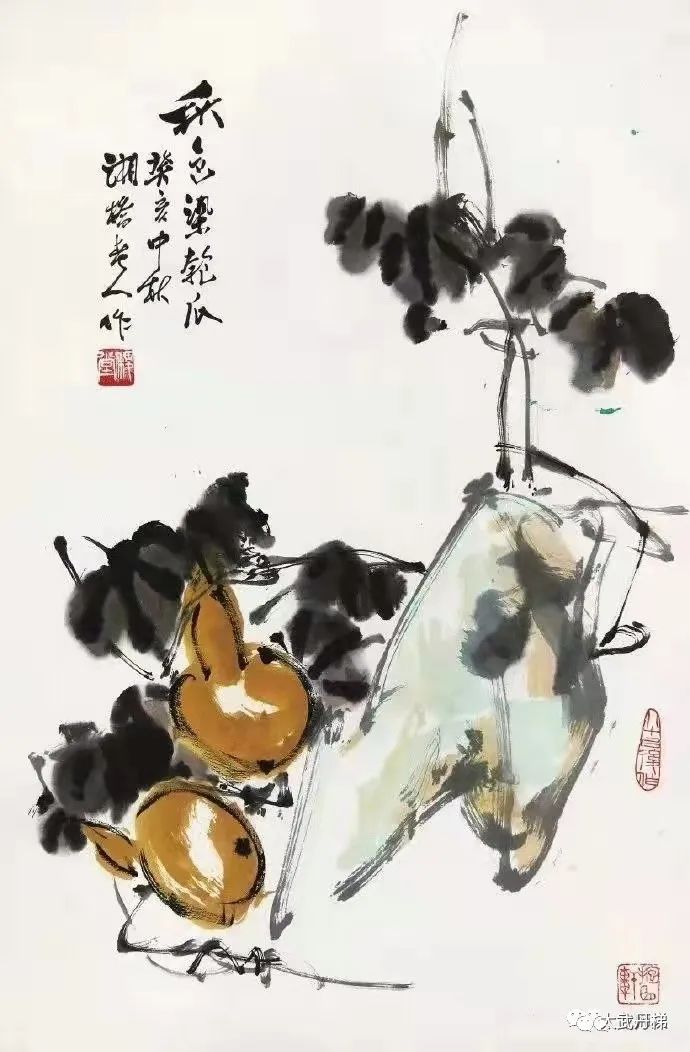 秋色染匏瓜
癸亥中秋
老人作
大武丹梯